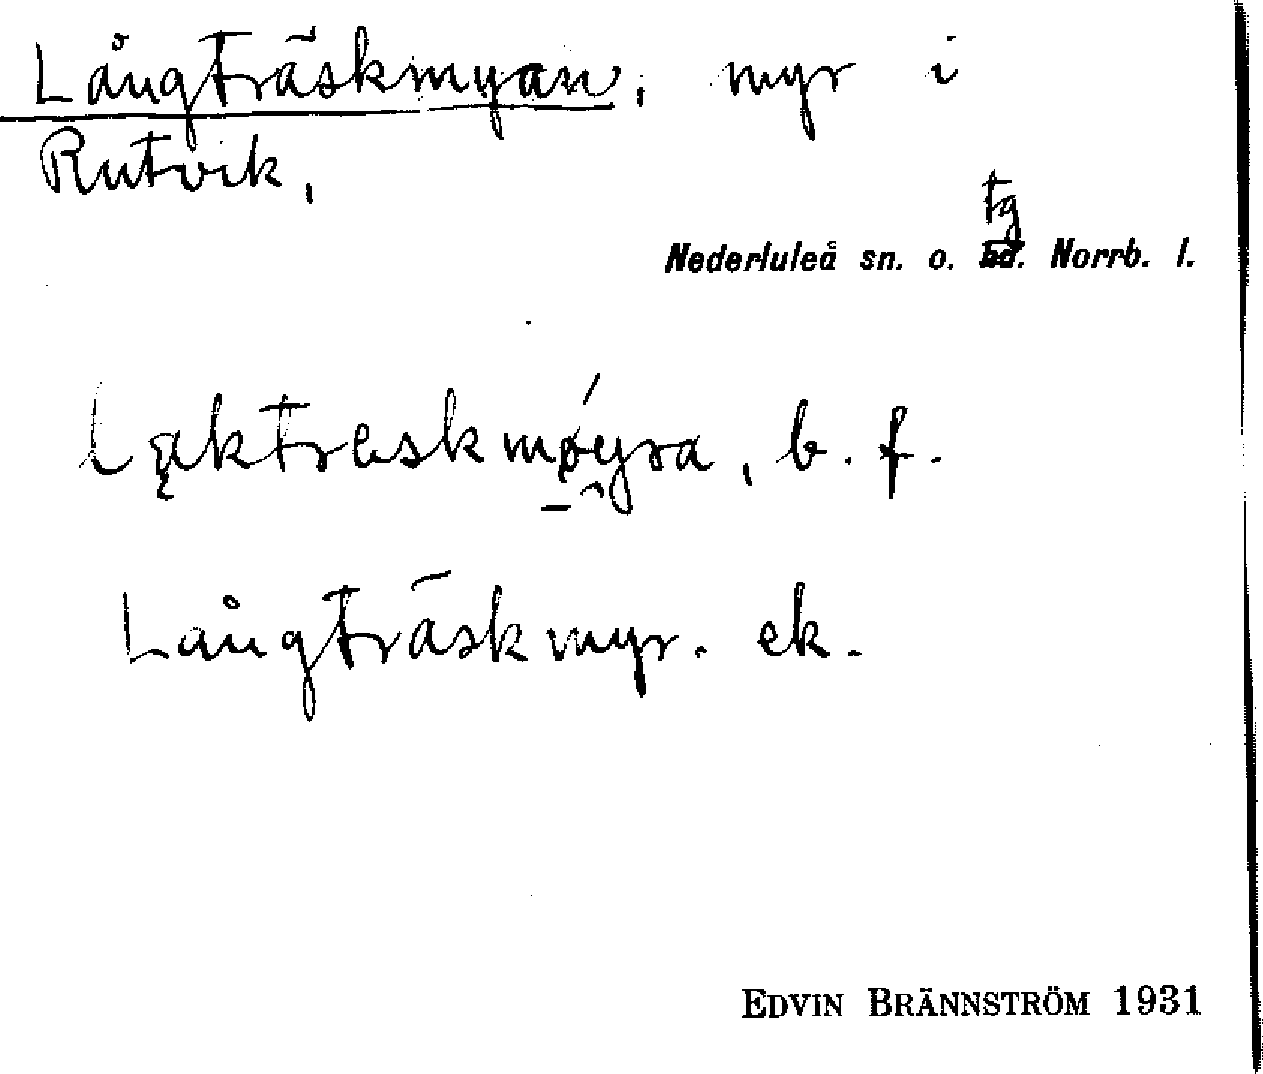 Långträskmyan, myr i
Rutvik,
tg
Nederluleå sn. o. hd. Norrb. l.
b. f.
Långträskmyr. ek.
EDVIN BRÄNNSTRÖM 1931